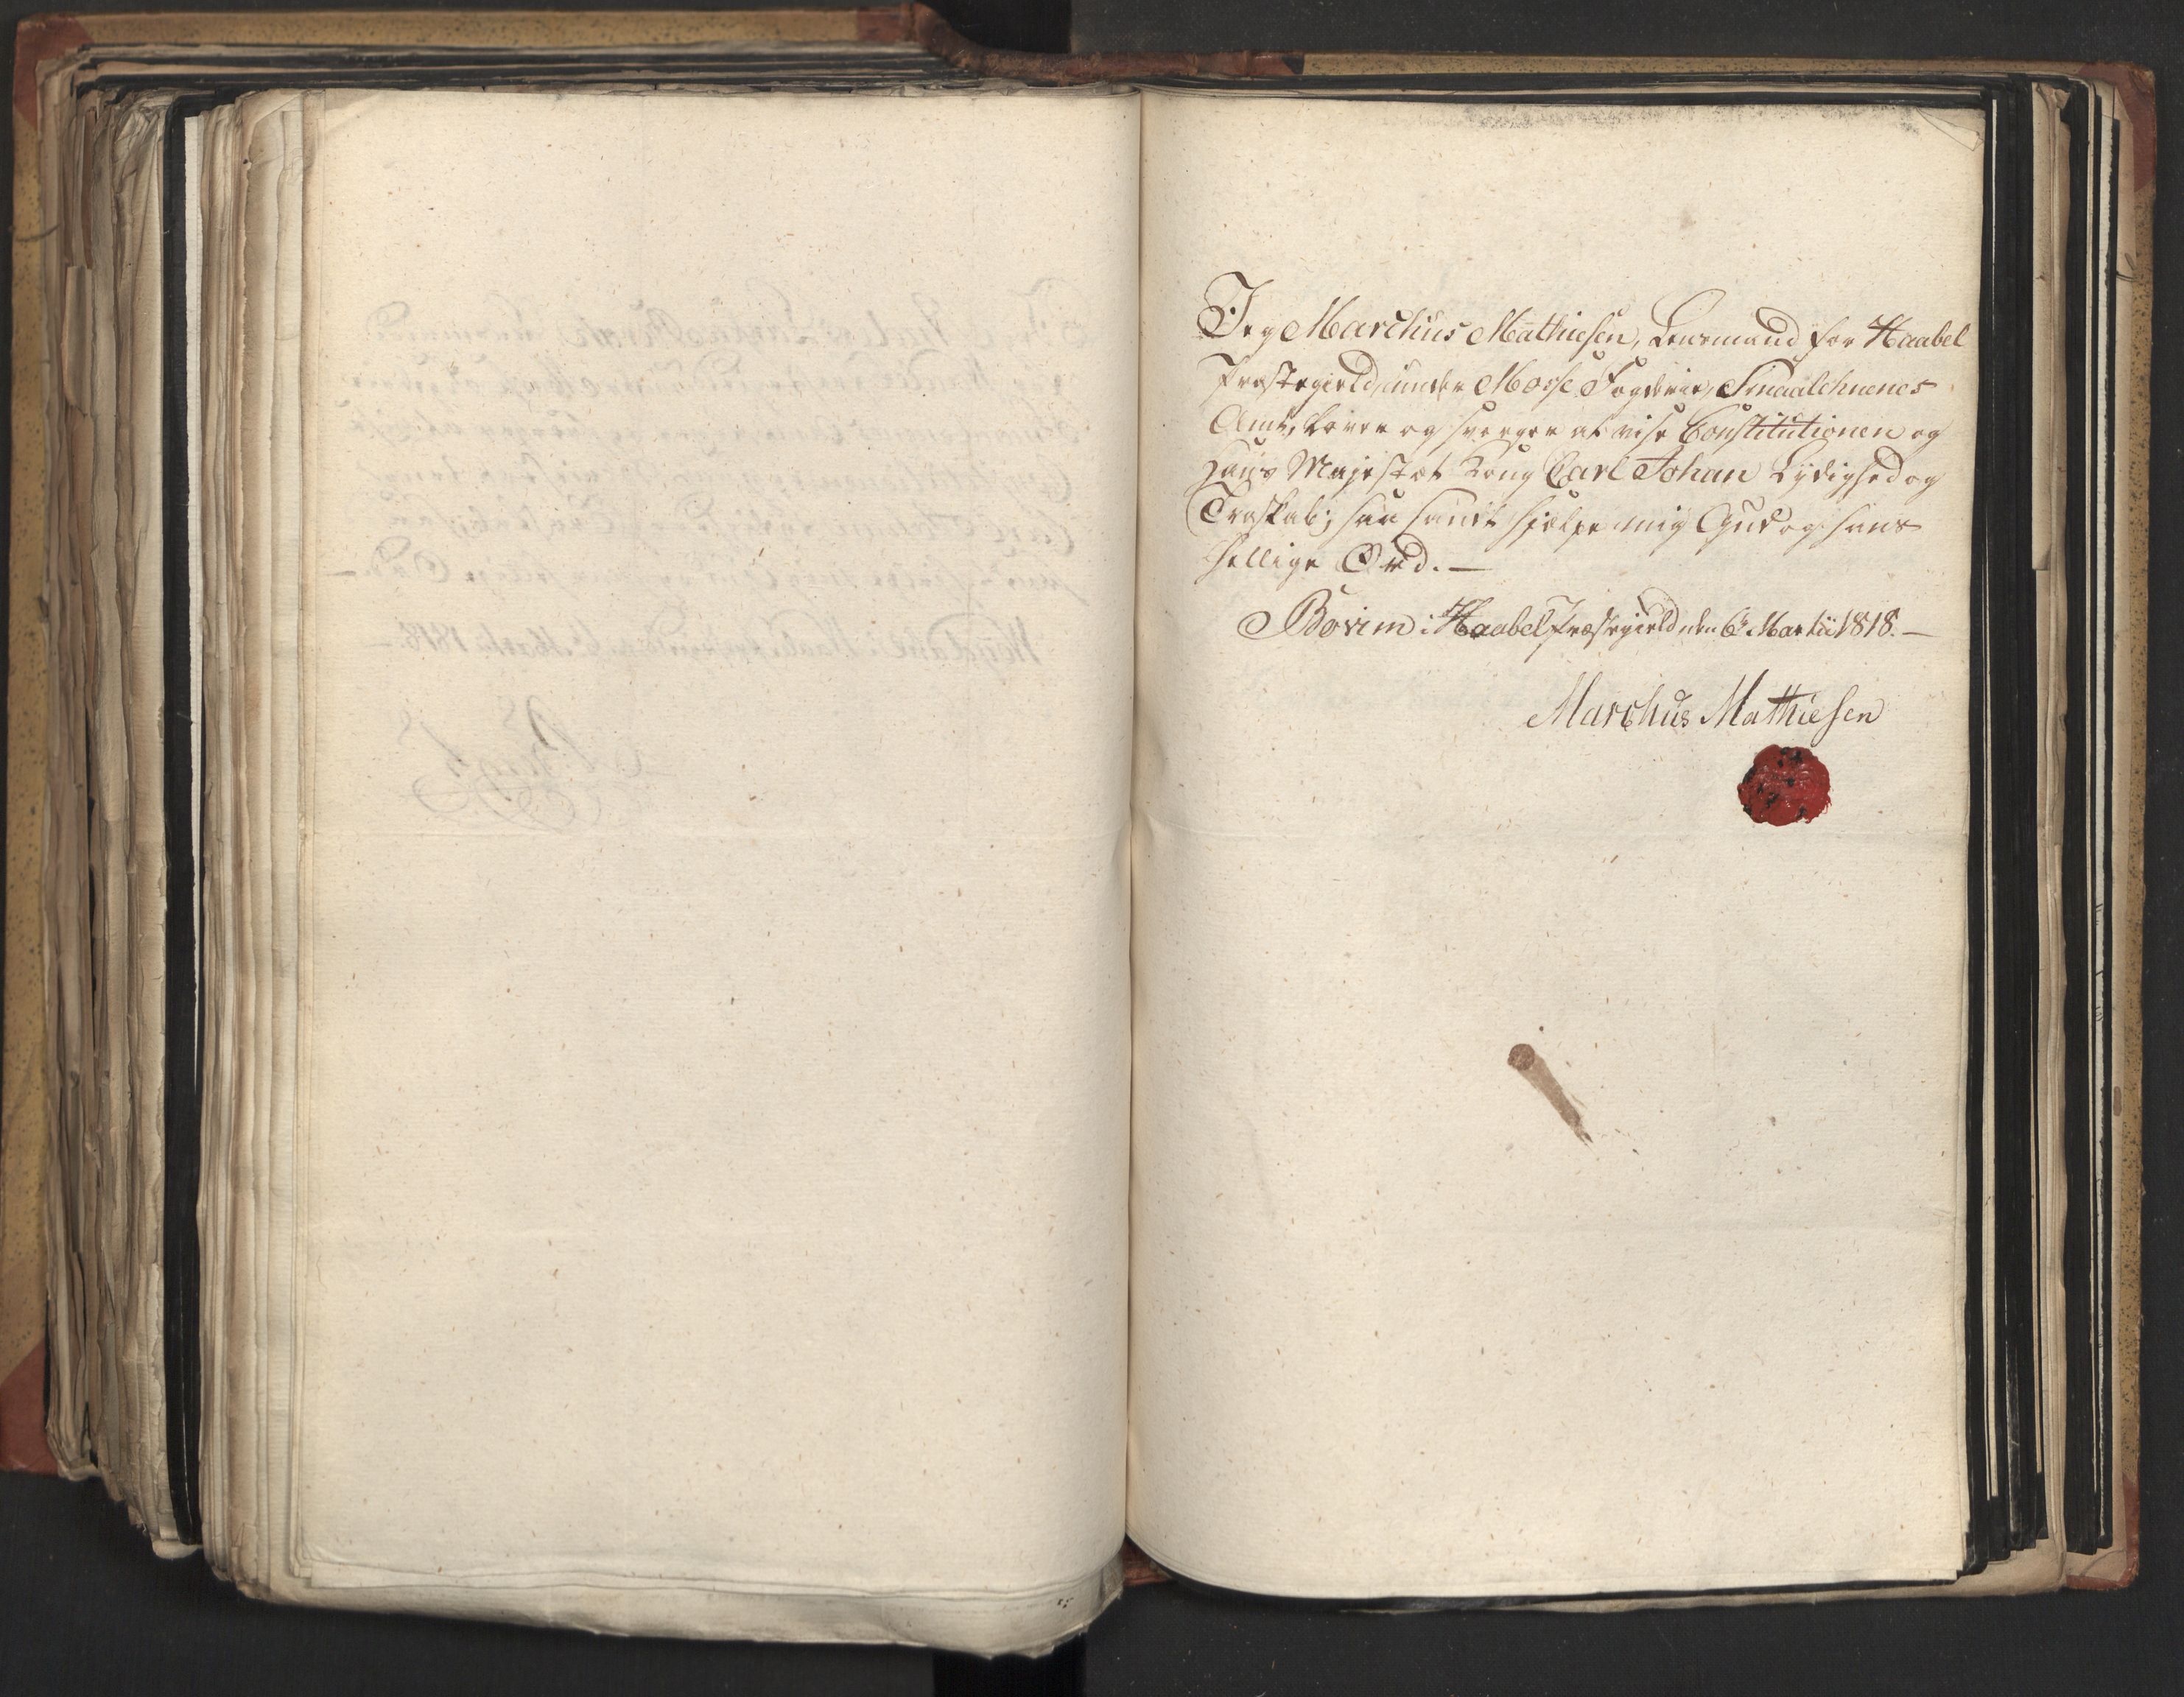 Jeg Marchus Mathiesen, Lensmand for Haabel
Præstegield, under Mosse Fogderie, Smaalehnenes
Amt, lover og sværger at vise Constitutionen og
Hans Majestæt Kong Carl Johan Lydighed og
Troskab; saa sandt hjælpe mig Gud og hans
hellige Ord. —
Bovim i Haabel Præstegield den 6te Martii 1818. —
Marchus Mathiesen